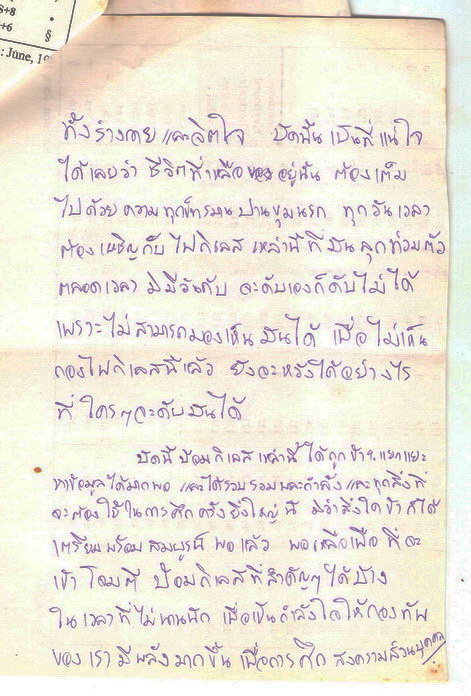 8+8
+6 §
: June, 19
ทั้งร่างกาย และจิตใจ บัดนั้น เป็นที่แน่ใจ
ได้เลยว่า ชีวิตที่เหลือของ อยู่นั้น ต้องเต็ม
ไปด้วย ความ ทุกข์ทรมาน ปานขุมนรก ทุกวันเวลา
ต้อง เผชิญกับ ไฟกิเลส เหล่านี้ ที่มัน ลุกท่วมตัว
ตลอดเวลา มิมีวันดับ จะดับเองก็ดับไม่ได้
เพราะไม่สามารถมองเห็น มันได้ เมื่อ ไม่เห็น
กองไฟกิเลสนี้แล้ว ยังจะหวังได้อย่างไร
ที่ ใครๆจะดับมันได้
บัดนี้ ป้อมกิเลส เหล่านี้ ได้ถูกข้าฯ แยกแยะ
หาข้อมูลได้มากพอ และได้รวบรวมพละกำลัง และทุกสิ่งที่
จะต้องใช้ในการศึกครั้งยิ่งใหญ่นี้ มิว่าสิ่งใด ข้าก็ได้
เตรียมพร้อม สมบูรณ์ พอแล้ว พอเหลือเฟือ ที่จะ
เข้าโจมตี ป้อมกิเลสที่สำคัญๆได้บ้าง
ในเวลาที่ไม่นานนัก เพื่อเป็นกำลังใจให้กองทัพ
ของเรา มีพลังมากขึ้น เพื่อการศึก สงครามส่วนบุคคล